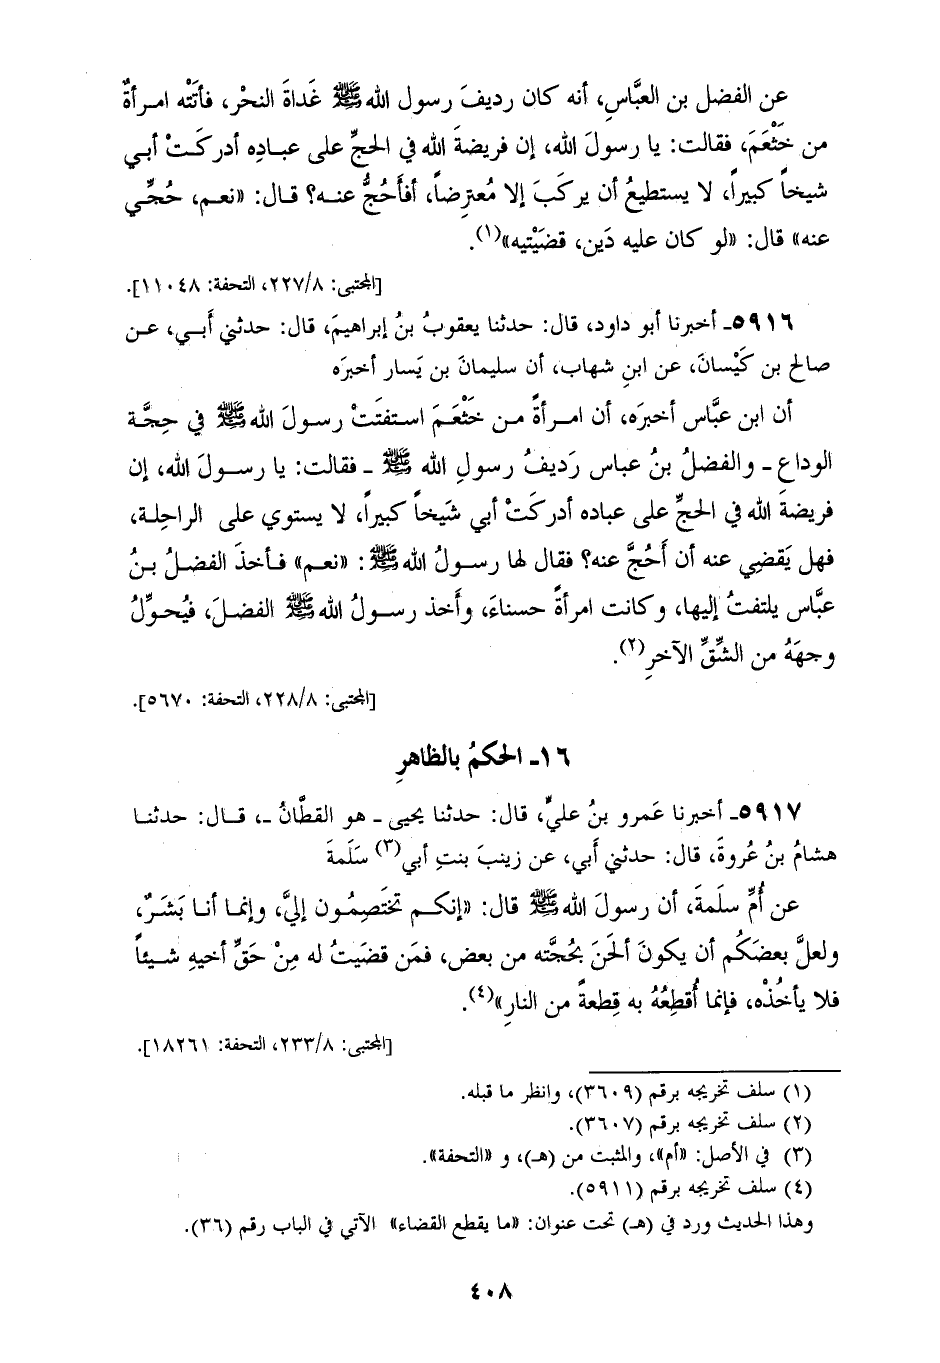 عن الفضل بن العبَّاسِ، أنه كان رديفَ رسول الله ﷺ غَداةَ النحْر، فأتَتْه امرأةٌ
من خَثْعَمَ، فقالت: يا رسولَ الله، إن فريضةَ الله في الحجِّ على عبادِه أدركَتْ أبي
شيخاً كبيراً، لا يستطيعُ أن يركَبَ إلا مُعترِضاً، أفأَحُجُّ عنه؟ قال: «نعم، حُجِّي
عنه» قال: «لو كان عليه دَين، قضَيْتِيه»(١).
[المجتبى: ٢٢٧/٨، التحفة: ١١٠٤٨].
٥٩١٦ـ أخبرنا أبو داود، قال: حدثنا يعقوبُ بنُ إبراهيمَ، قال: حدثني أَبي، عن
صالح بن كَيْسانَ، عن ابنِ شهاب، أن سليمانَ بن يَسار أخبرَه
أن ابن عبَّاس أخبرَه، أن امرأةً من خَثْعَمَ استفتَتْ رسولَ الله ﷺ في حِجَّة
الوداع ـ والفضلُ بنُ عباس رَديفُ رسولِ الله ﷺ ـ فقالت: يا رسولَ الله، إن
فريضةَ الله في الحجِّ على عباده أدركَتْ أبي شَيخاً كبيراً، لا يستوي على الراحِلة،
فهل يَقضِي عنه أن أَحُجَّ عنه؟ فقال لها رسولُ الله ﷺ: «نعم» فأخذَ الفضلُ بنُ
عبَّاس يلتفتُ إليها، وكانت امرأةً حسناءَ، وأَخذ رسولُ الله ﷺ الفضلَ، فيُحوِّلُ
وجهَهُ من الشِّقِّ الآخرِ(٢).
[المجتبى: ٢٢٨/٨، التحفة: ٥٦٧٠].
١٦ـ الحكمُ بالظاهرِ
٥٩١٧ـ أخبرنا عَمرو بنُ عليٍّ، قال: حدثنا يحيى ـ هو القطَّانُ ـ، قال: حدثنا
هشامُ بنُ عُروةَ، قال: حدثني أَبي، عن زينبَ بنتِ أبي(٣) سَلَمةَ
عن أُمِّ سلَمةَ، أن رسولَ الله ﷺ قال: «إنكم تختَصِمُون إليَّ، وإنما أنا بَشَرٌ،
ولعلَّ بعضَكُم أن يكونَ ألحَنَ بحُجَّته من بعض، فمَن قضَيتُ له مِنْ حَقِّ أخيهِ شيئاً
فلا يأخُذْه، فإنما أُقطِعُهُ به قِطعةً من النارِ»(٤).
[المجتبى: ٢٣٣/٨، التحفة: ١٨٢٦١].
(١) سلف تخريجه برقم (٣٦٠٩)، وانظر ما قبله.
(٢) سلف تخريجه برقم (٣٦٠٧).
(٣) في الأصل: «أم»، والمثبت من (هـ)، و «التحفة».
(٤) سلف تخريجه برقم (٥٩١١).
وهذا الحديث ورد في (هـ) تحت عنوان: «ما يقطع القضاء» الآتي في الباب رقم (٣٦).
٤٠٨